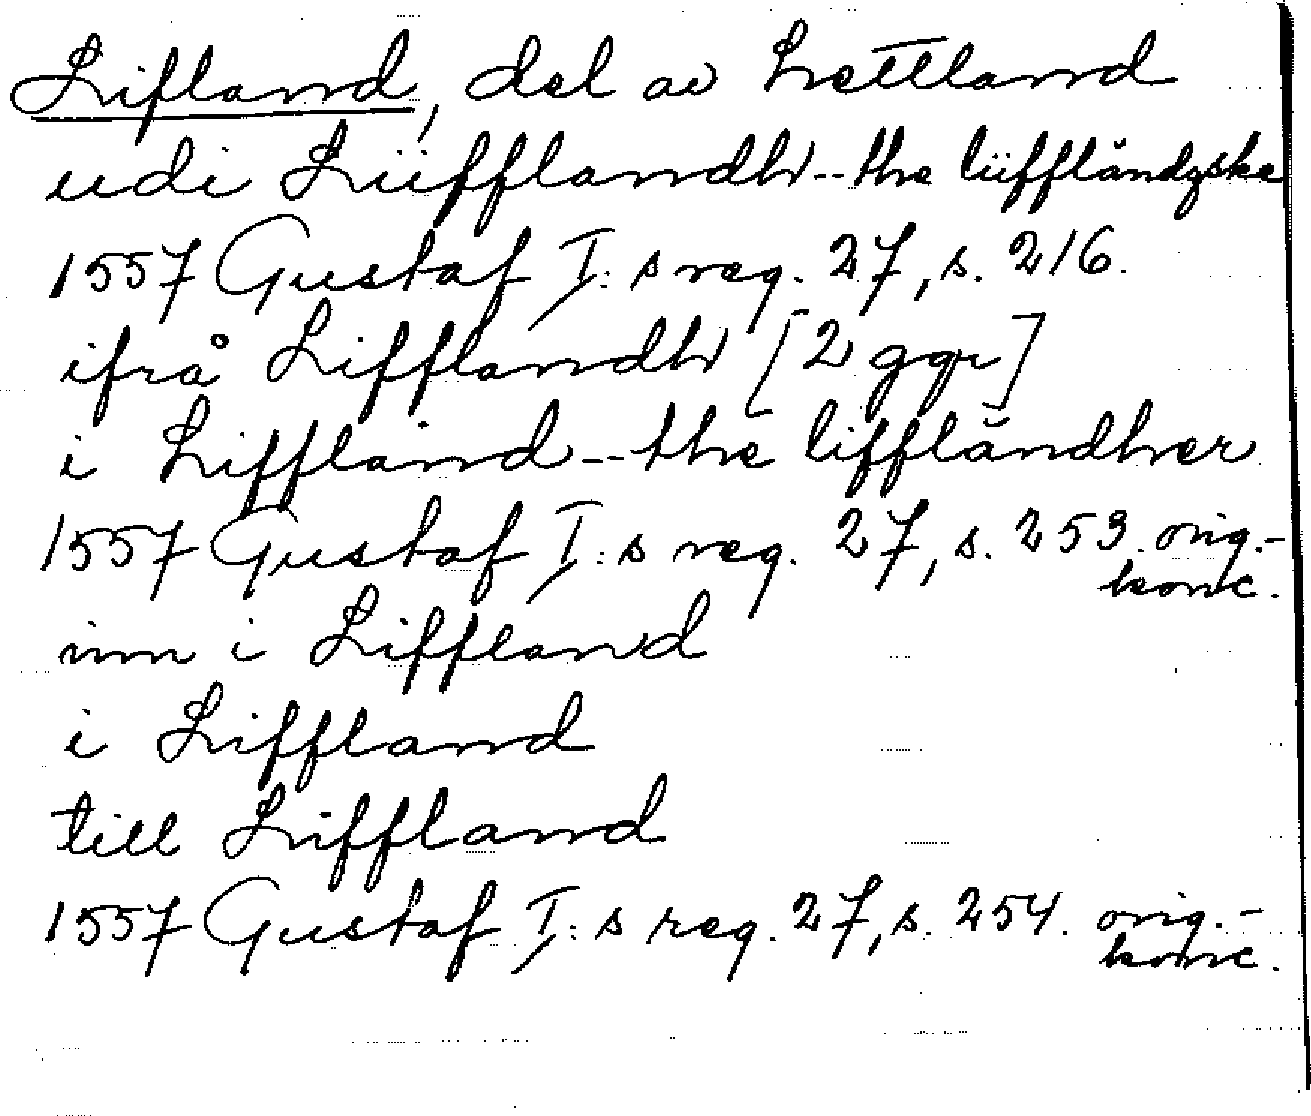 Lifland, del av Lettland
udi Lüfflandh -- the lüffländzske
1557 Gustaf I:s reg. 27, s. 216.
ifrå Lifflandh [2 ggr]
i Liffland -- the liffländher
1557 Gustaf I:s reg. 27, s. 253. orig.-
konc.
inn i Liffland
i Liffland
till Liffland
1557 Gustaf I:s reg. 27, s. 254. orig.-
konc.